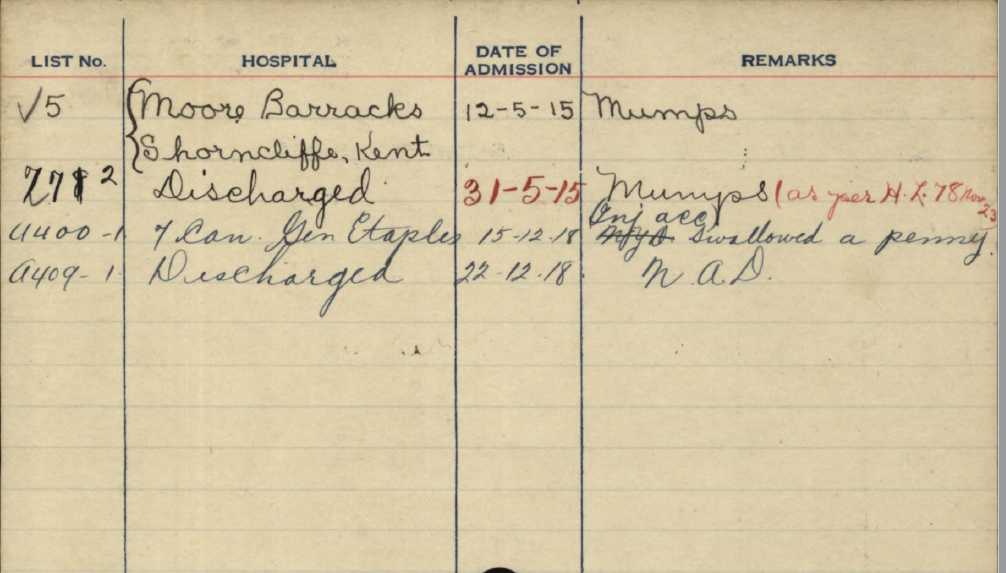 LIST No. HOSPITAL DATE OF ADMISSION REMARKS
√5 Moore Barracks 12-5-15 Mumps
Shorncliffe, Kent
2 Discharged 31-5-15 Mumps (as per H.L. 78 Nov 23
Inj acc
a400-1 7 Can. Gen Etaples 15-12-18 Swallowed a penny.
a409-1 Discharged 22-12-18. N.A.D.